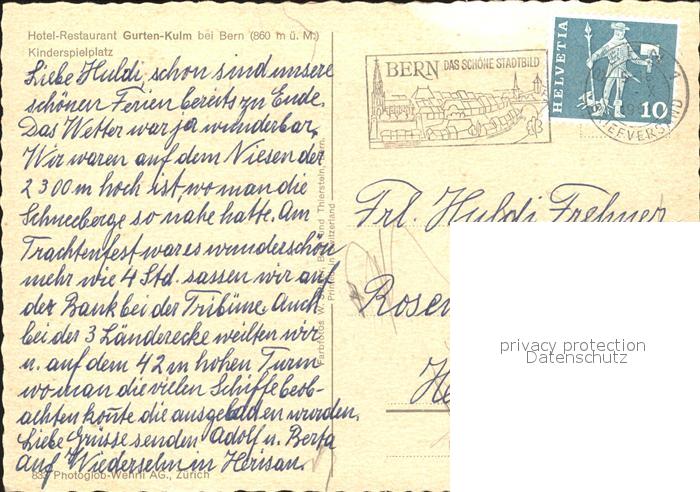 Hotel-Restaurant Gurten-Kulm bei Bern (860 m ü. M.)
Kinderspielplatz
Liebe Huldi, schon sind unsere
schönen Ferien bereits zu Ende.
Das Wetter war ja wunderbar,
Wir waren auf dem Niesen der
2300 m hoch ist, wo man die
Schneeberge so nahe hatte. Am
Trachtenfest war es wunderschön
mehr wie 4 Std. sassen wir auf
der Bank bei der Tribüne. Auch
bei der 3 Länderecke weilten wir
u. auf dem 42 m hohen Turm
wo man die vielen Schiffe beob-
achten kon̄te die ausgeladen wurden.
Liebe Grüsse senden Adolf u. Berta
Auf Wiedersehn in Herisau.
833 Photoglob-Wehrli AG., Zürich
Farbfotos W. und Thierstein, Bern
Printed in Switzerland
BERN DAS SCHÖNE STADTBILD
HELVETIA
10
BRIEFVERSAND
Frl. Huldi Frehner
Rosen
He
privacy protection
Datenschutz